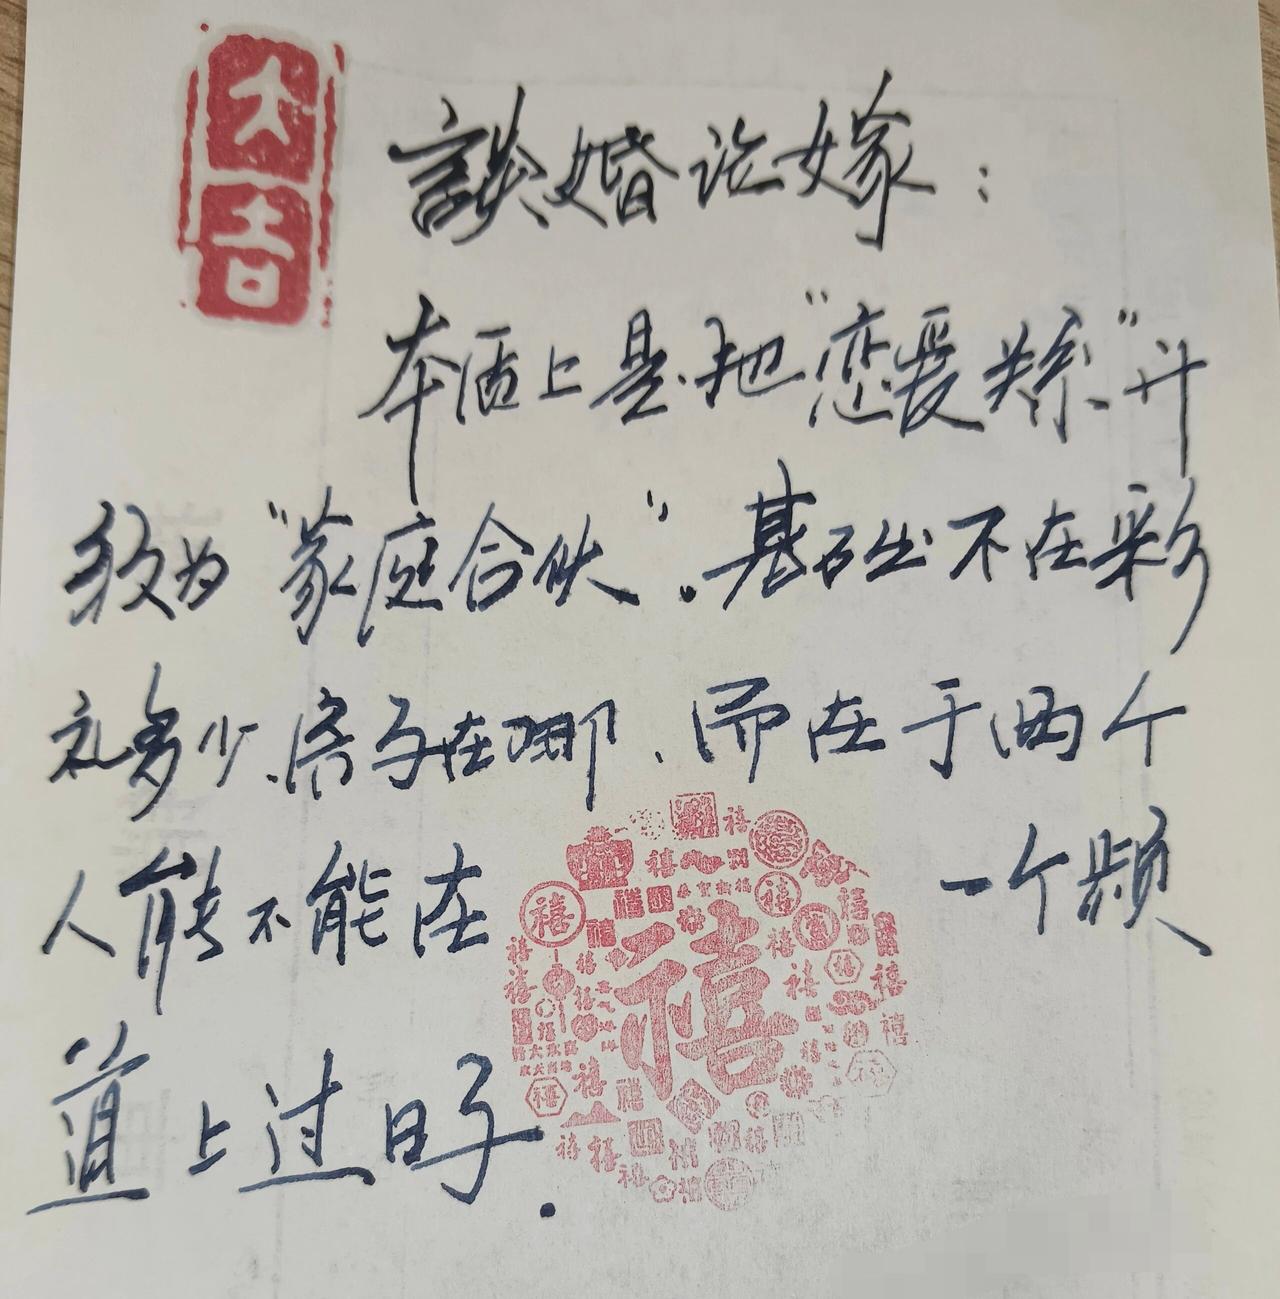 大吉
談婚论嫁：
本质上是把“恋爱关系”升
级为“家庭合伙”.基础不在彩
礼多少、房子在哪、而在于两个
人能不能在 一个频
道上过日子.
禧